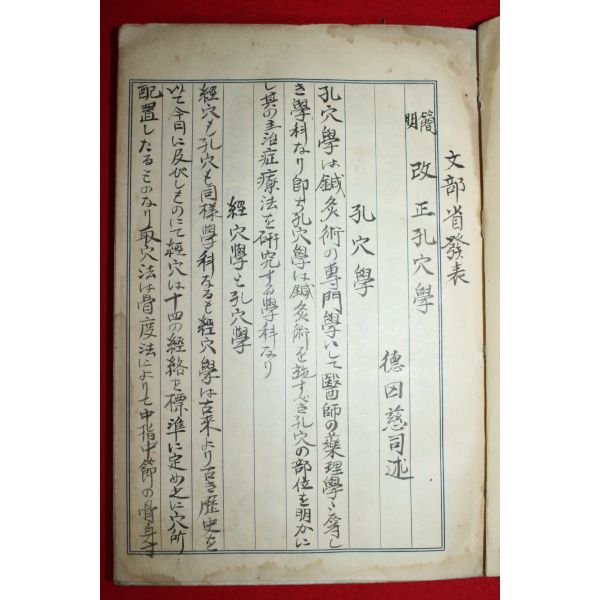 文部省發表
簡明 改正孔穴學
德田慈司述
孔穴學
孔穴學は鍼灸術の専門學にして醫師の藥理學に等し
き學科なり即ち孔穴學は鍼灸術を施すべき孔穴の部位を明かに
し其の主治症療法を研究する學科なり
經穴學と孔穴學
經穴も孔穴も同様學科なるも經穴學は古来より古き歴史を
以て今日に及びしものにて經穴は十四の経絡を標準に定め之に穴所
配置したるものなり取穴法は骨度法によりて中指中節の骨